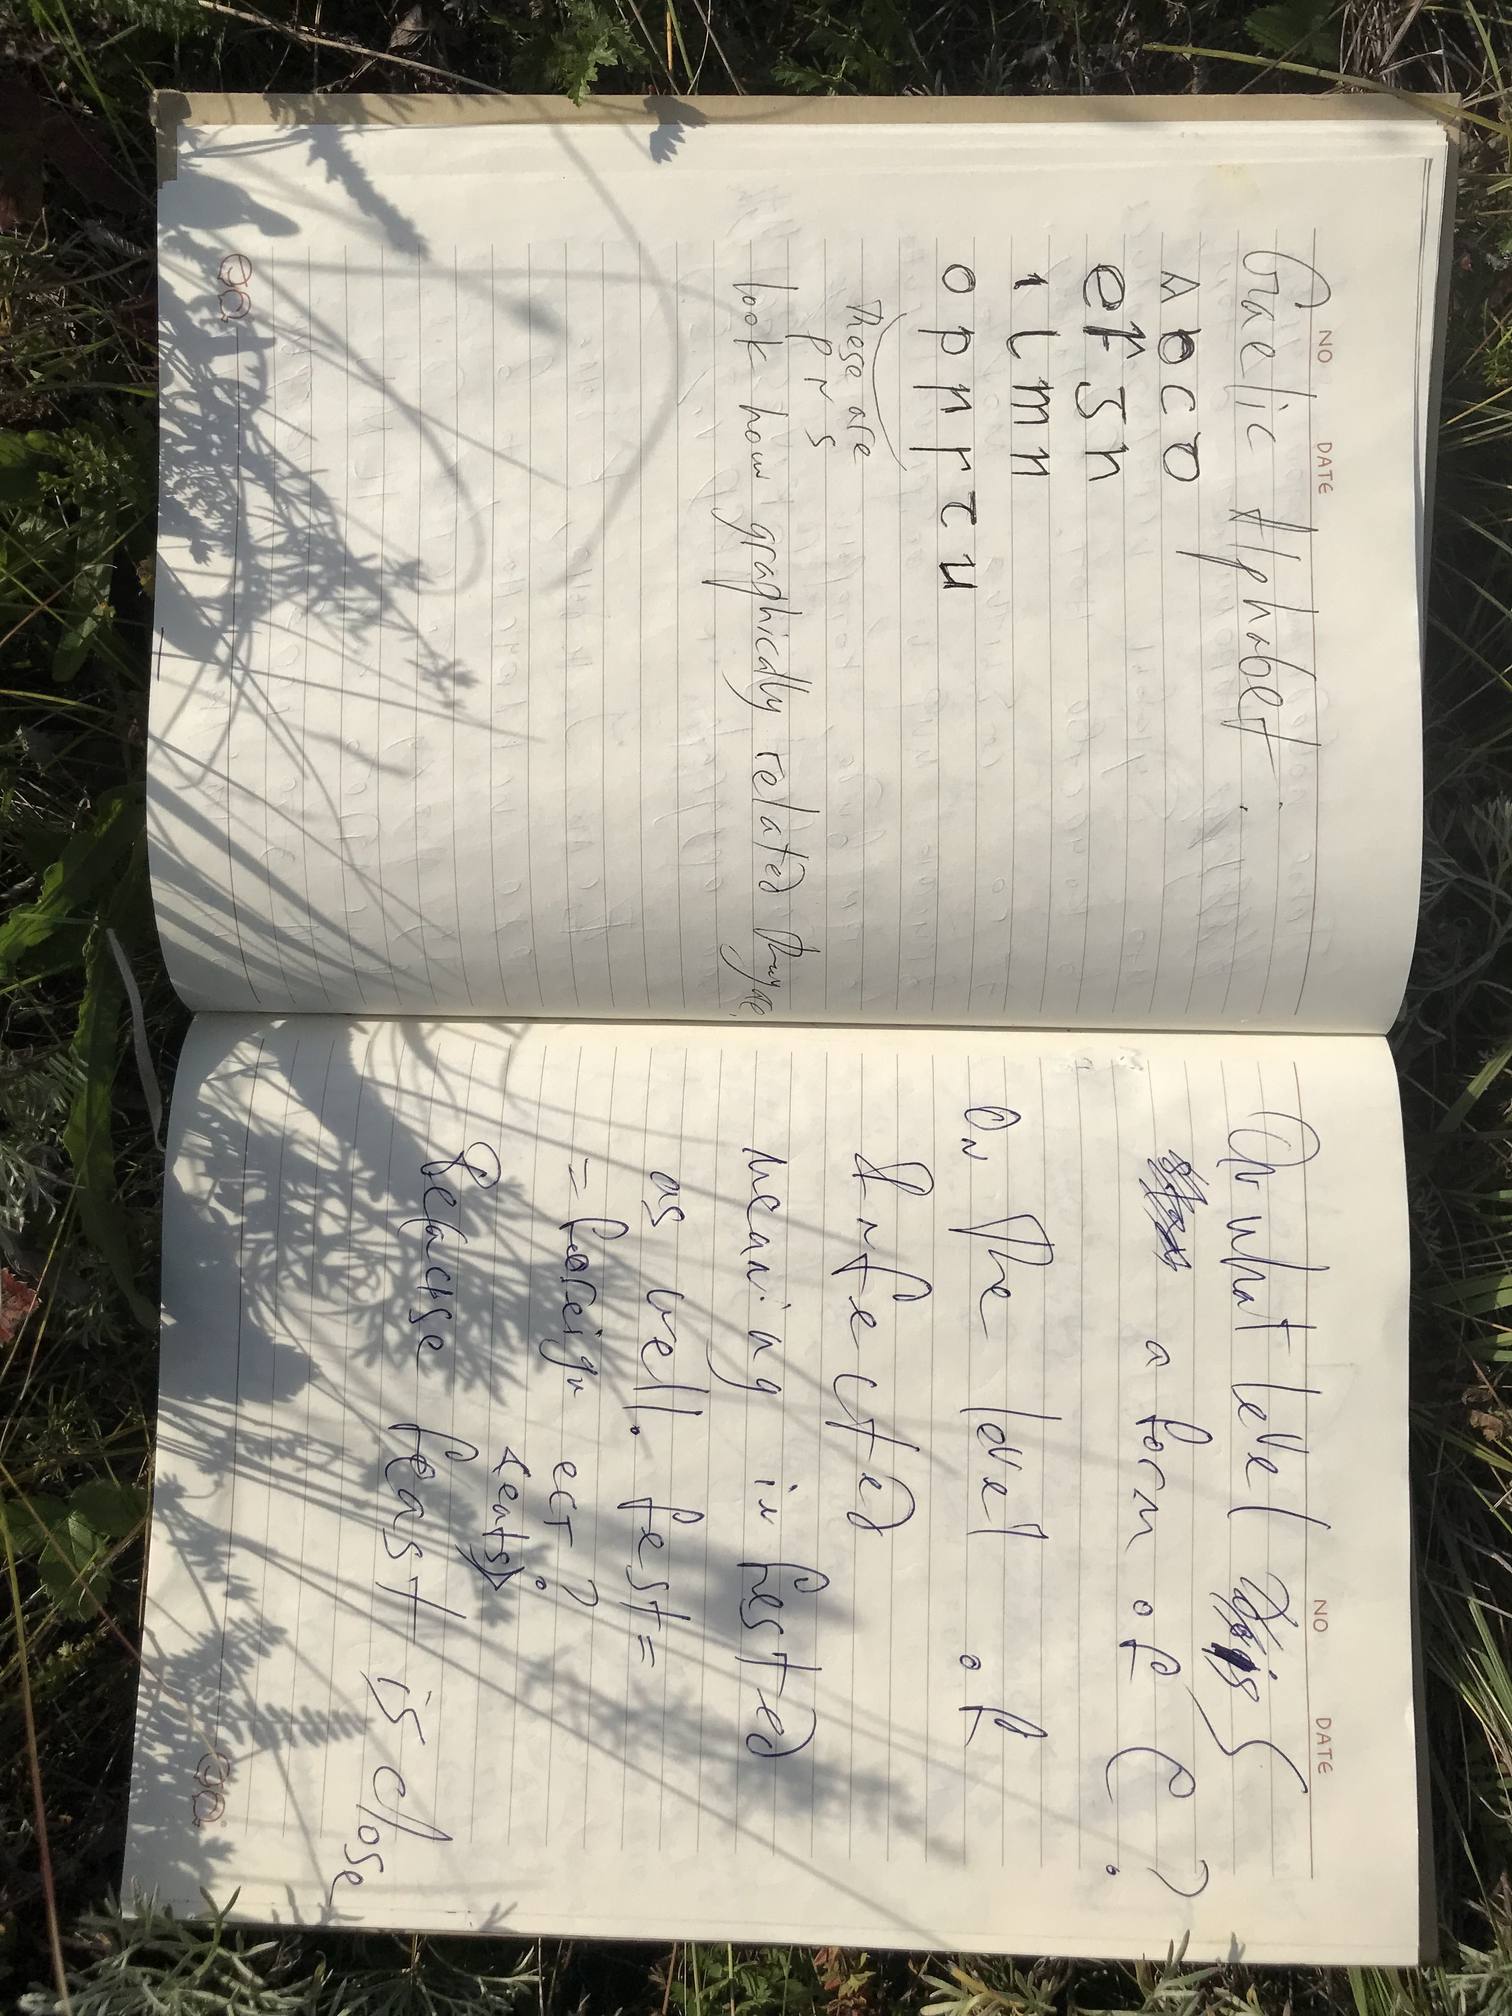 NO DATE
Gaelic Alphabet.
A b c ꝺ
e ꝼ ᵹ h
ı l m n
o p ꞃ ꞅ ꞇ u
These are
p r s
look how graphically related they are.
NO DATE
On what level is S
a form of C?
On the level of
Infected
meaning in fested
as well. fest =
= foreign ect?
<eats>
Because feast is close